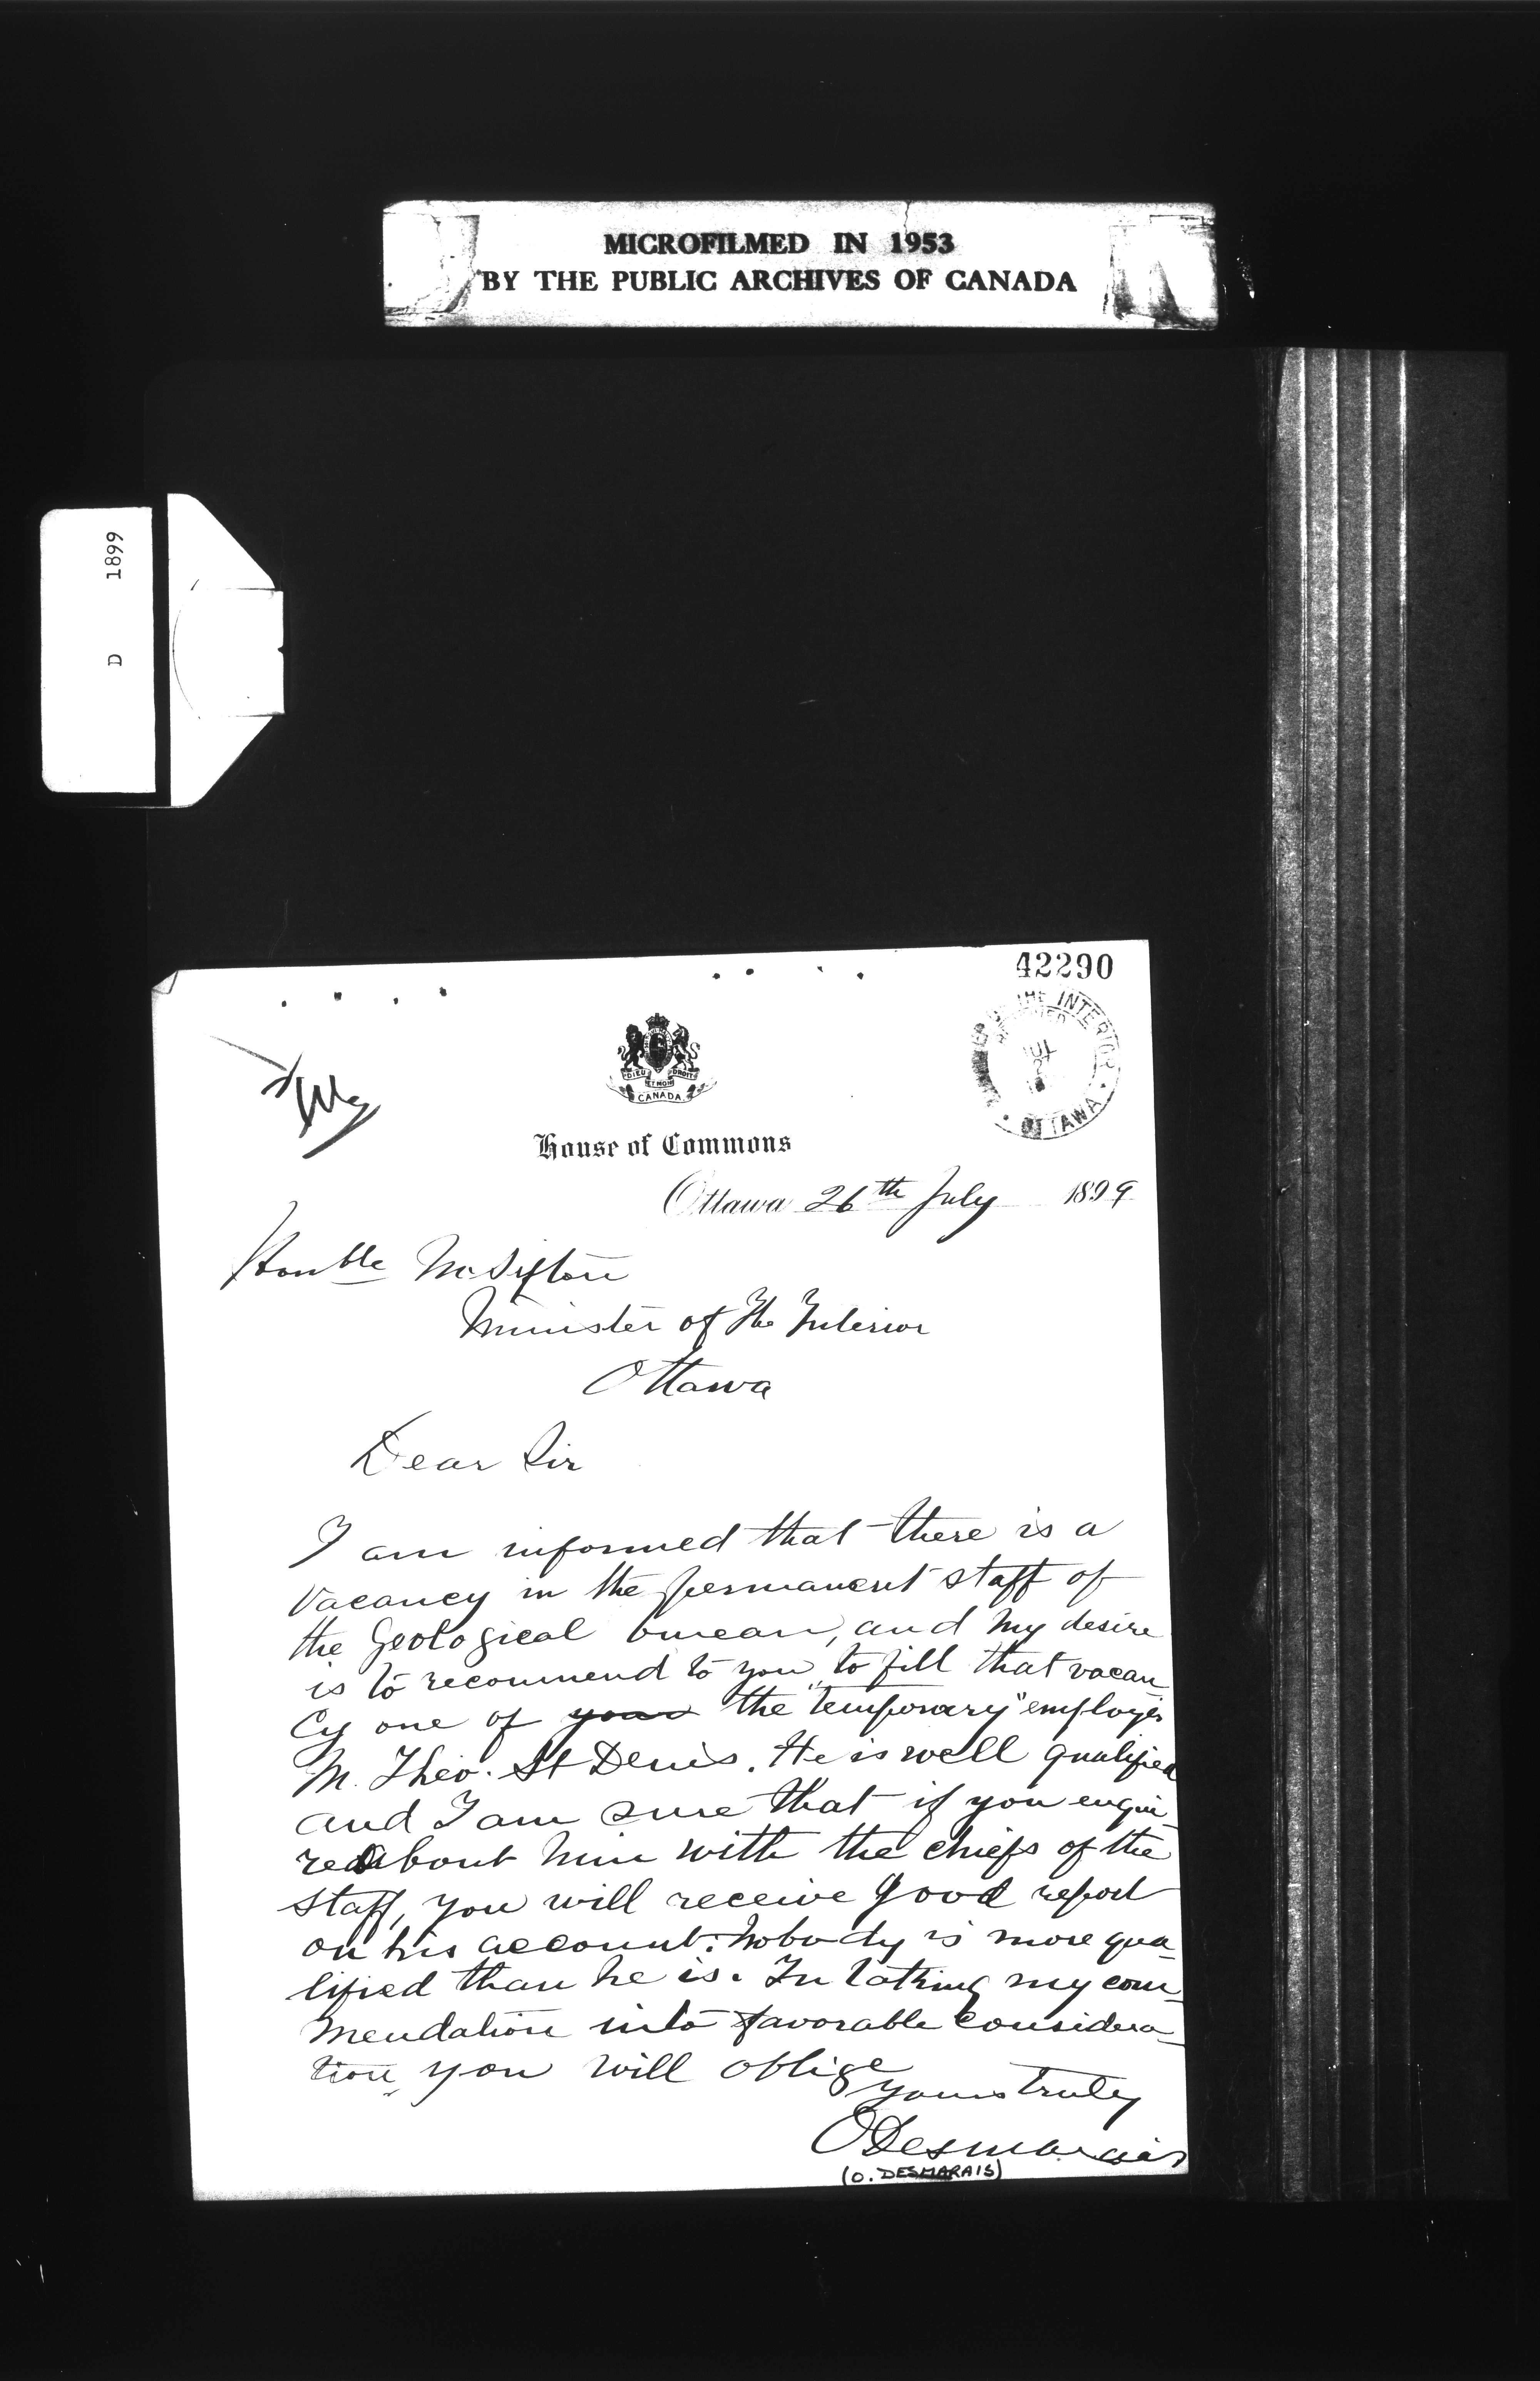 MICROFILMED IN 1953
BY THE PUBLIC ARCHIVES OF CANADA
D 1899
42290
THE INTERIOR
OTTAWA
DIEU ET MON DROIT
CANADA
House of Commons
Ottawa 26th July 1899
Honble M. Sifton
Minister of the Interior
Ottawa
Dear Sir
I am informed that there is a
vacancy in the permanent staff of
the Geological bureau, and my desire
is to recommend to you, to fill that vacan
cy one of your the "temporary" employes
M. Theo. St Denis. He is well qualified
and I am sure that if you enqui
re about him with the chiefs of the
staff, you will receive good report
on his account: nobody is more qua-
lified than he is. In taking my com-
mendation into favorable considera-
tion, you will oblige
yours truly
O Desmarais
(O. DESMARAIS)